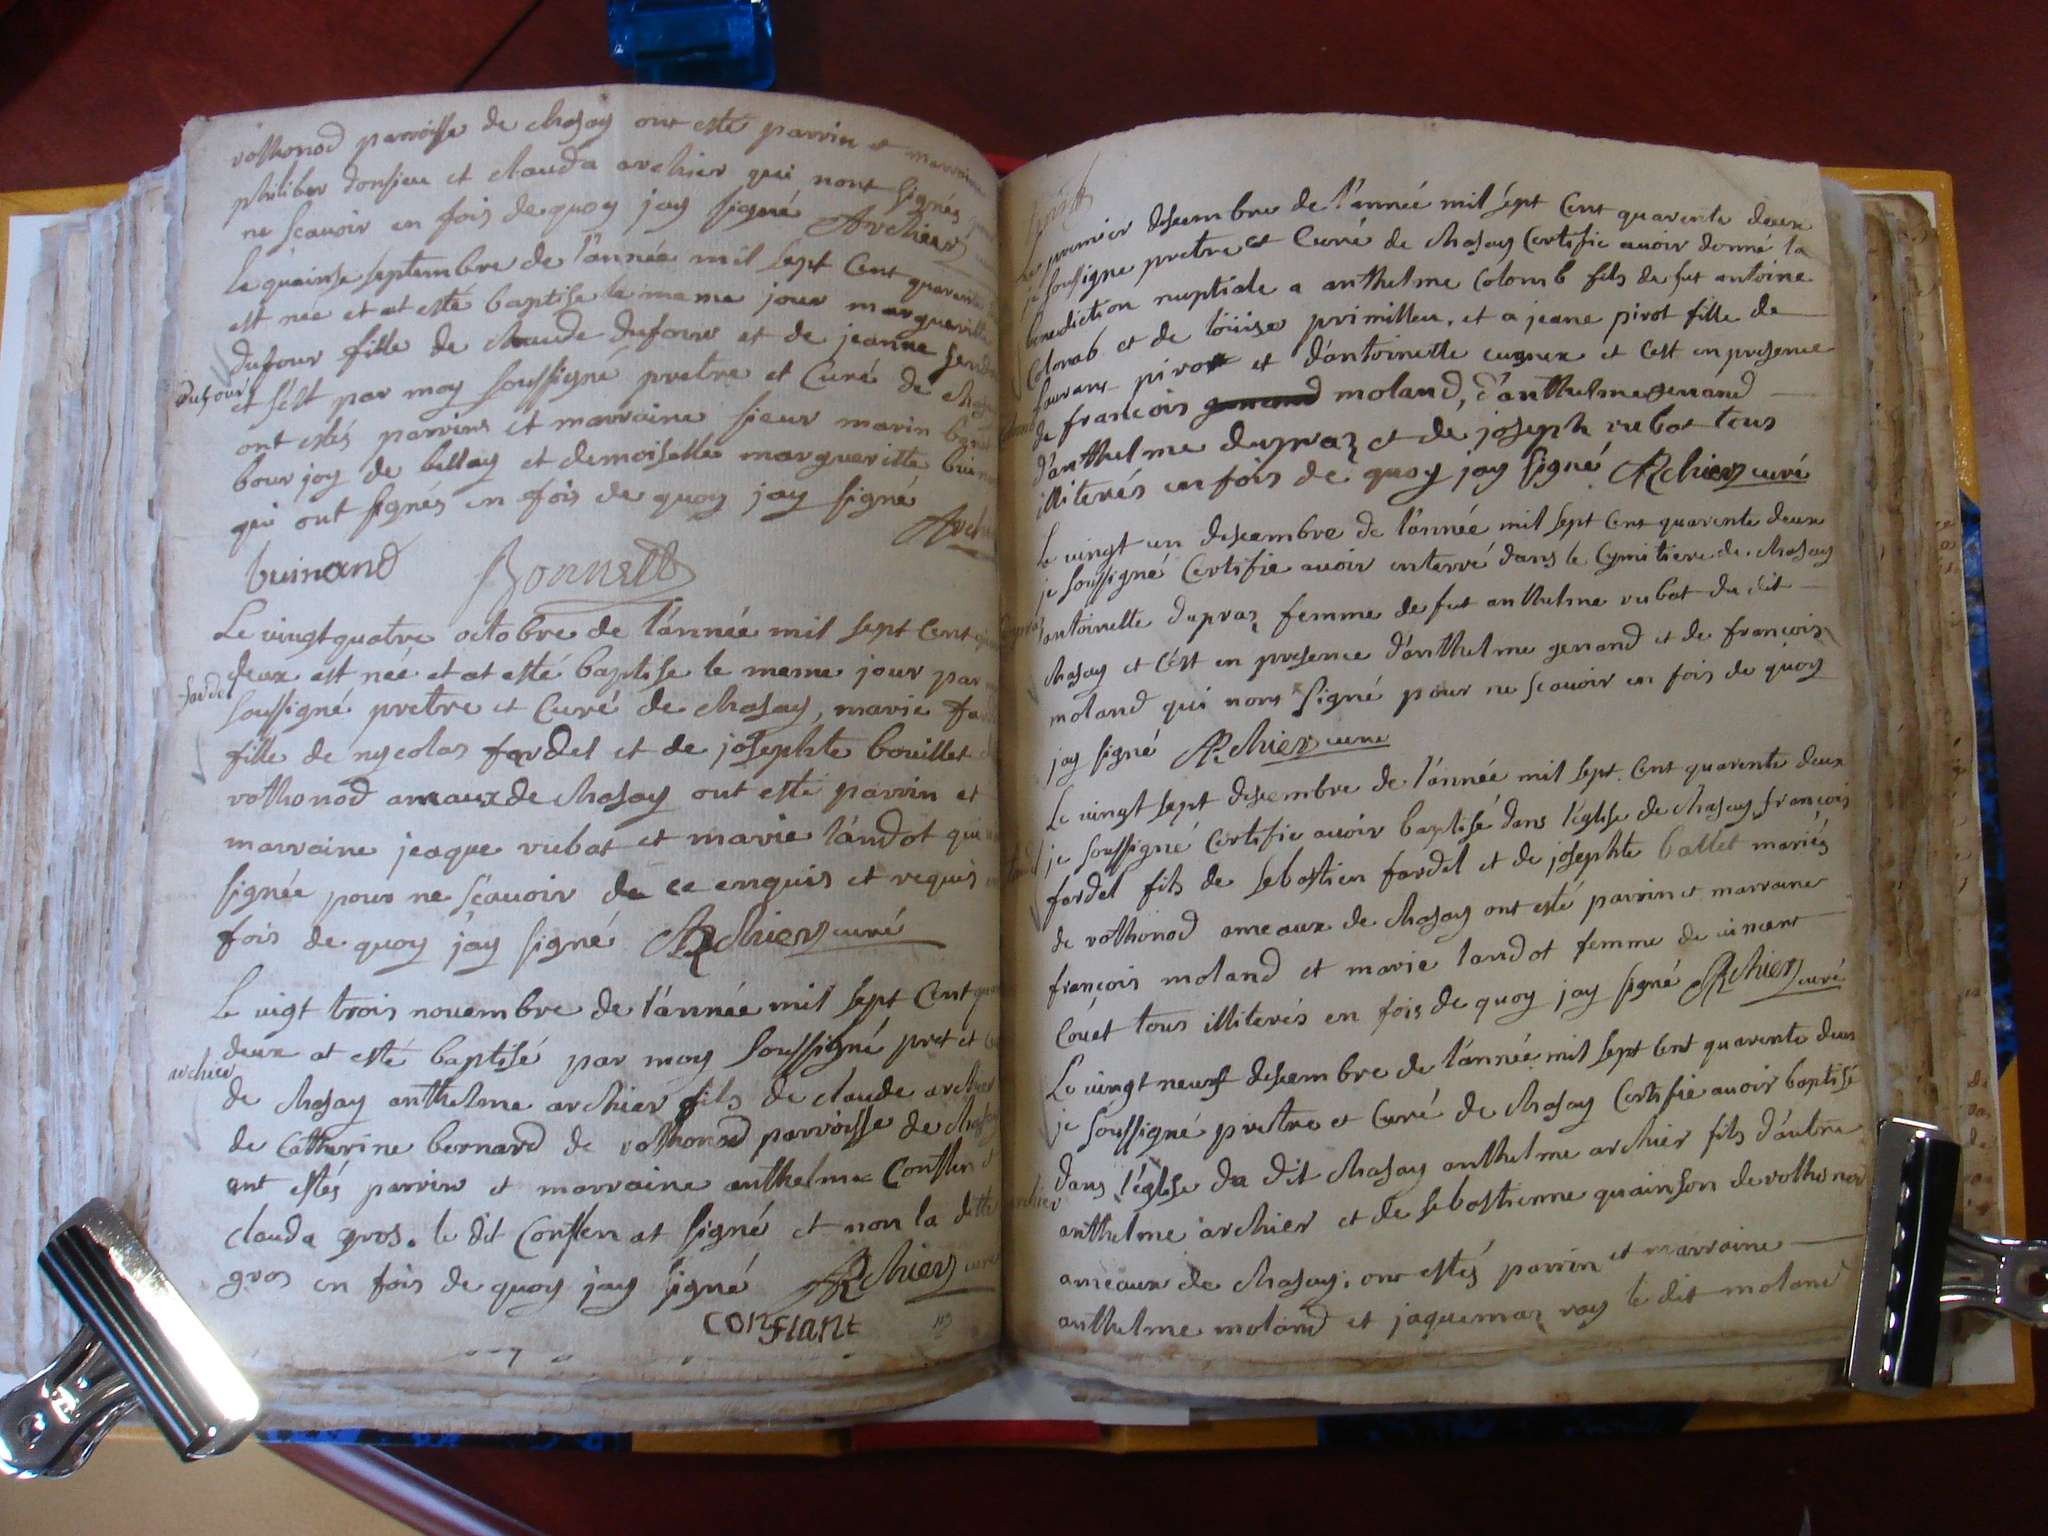 vothonod parroisse de chasay ont esté parrin et marraine
philiber donsieu et clauda archier qui nont signés
ne scavoir en fois de quoy jay signé Archier
Le quainse septembre de l'année mil sept Cent quarente
est née et at esté baptise le mame jour margueritte
dufour
dufour fille de claude dufour et de jeanne
et sest par moy soussigné pretre et Curé de
ont estés parrins et marraine sieur marin
bourjoy de bellay et demoiselle margueritte
qui ont signés en fois de quoy jay signé
buinand Bonnet
Le vingt quatre octobre de l'année mil sept Cent
deux est neé et at esté baptise le meme jour par
fardel
soussigné pretre et Curé de chasay, marie
fille de nycolas fardel et de josephte bouillet
vothonod ameaux de chasay ont esté parrin et
marraine jeaque rubat et marie landot qui
signée pour ne scavoir de ce enquis et requis
fois de quoy jay signé Archier curé
Le vigt trois novembre de l'année mil sept Cent
deux at esté baptisé par moy soussigné pret et
archier
de chasay anthelme archier fils de claude archier
de Catherine bernard de vothonod parroisse de
ont estés parrin et marraine anthelme
clauda gros. le dit at signé et non la ditte
gros en fois de quoy jay signé Archier curé
Le premier desembre de l'année mil sept Cent quarente deux
je soussigne pretre et Curé de chasay Certifie avoir donné la
benediction nuptiale a anthelme Colomb fils de fut antoine
Colomb et de loüise primilleu, et a jeane pirot fille de
pirot et d'antoinette cugneux et cest en presence
de francois moland, d'anthelme genand
d'anthelme dupraz et de joseph rubat tous
illiterés en fois de quoy jay signé Archier curé
Le vingt un desembre de l'année mil sept Cent quarente deux
je soussigné Certifie avoir enterré dans le Cymitiere de chasay
antoinette dupraz femme de fut anthelme rubat du dit
chasay et cest en presence d'anthelme genand et de francois
moland qui nont signé pour ne scavoir en fois de quoy
jay signé Archier curé
Le vingt sept desembre de l'année mil sept Cent quarente deux
je soussigné Certifie avoir baptisé dans l'église de chasay francois
fardel fils de sebastien fardel et de josephte ballet mariés
de vothonod ameaux de chasay ont esté parrin et marraine
françois moland et marie landot femme de vincent
Couet tous illiterés en fois de quoy jay signé Archier curé
Le vingt neuf desembre de l'année mil sept Cent quarente deux
je soussigné pretre et Curé de chasay Certifie avoir baptisé
dans l'église du dit chasay anthelme archier fils d'autre
archier
anthelme archier et de sebastienne quainson de vothonod
ameaux de chasay, ont estés parrin et marraine
anthelme moland et jaquemaz ray le dit moland